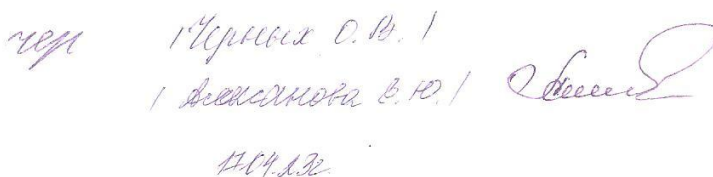 чер /Черных О.В./
/Алексанова Е.Ю./
17.04.23г.